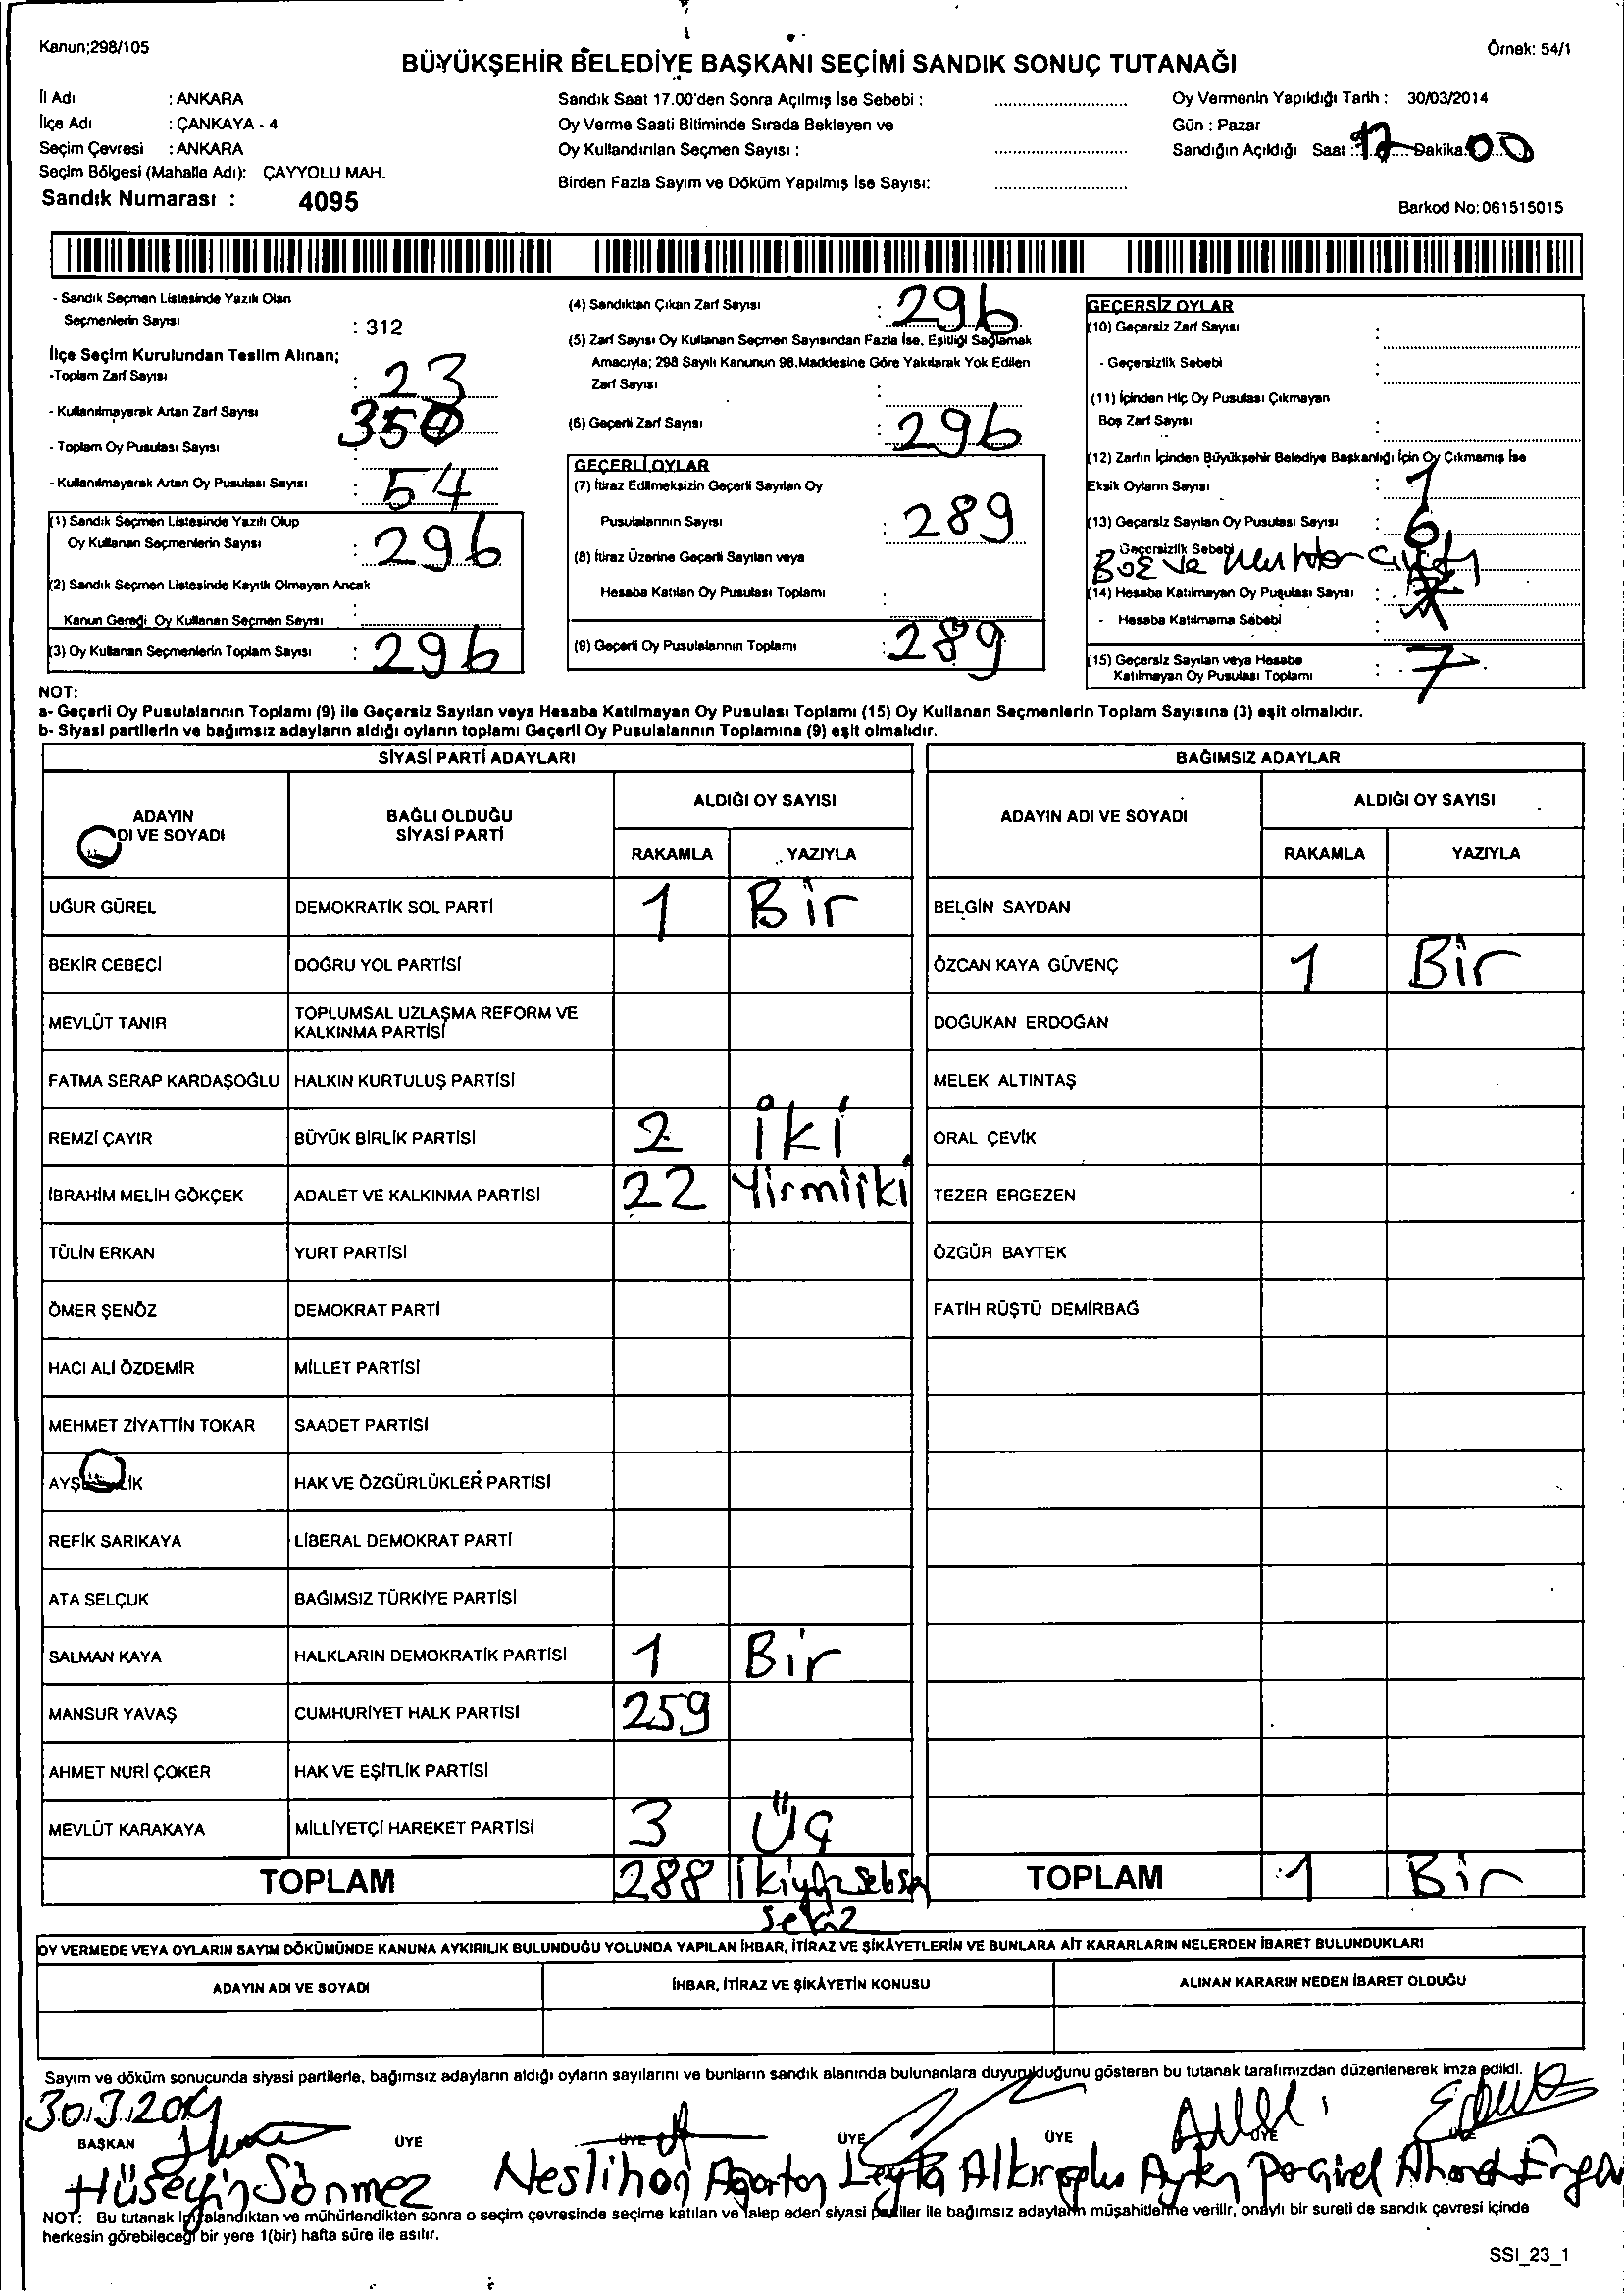 Kanun;298/105
Örnek: 54/1
BÜYÜKŞEHİR BELEDİYE BAŞKANI SEÇİMİ SANDIK SONUÇ TUTANAĞI
İl Adı : ANKARA
İlçe Adı : ÇANKAYA - 4
Seçim Çevresi : ANKARA
Seçim Bölgesi (Mahalle Adı): ÇAYYOLU MAH.
Sandık Numarası : 4095
Sandık Saat 17.00'den Sonra Açılmış İse Sebebi :
Oy Verme Saati Bitiminde Sırada Bekleyen ve
Oy Kullandırılan Seçmen Sayısı :
Birden Fazla Sayım ve Döküm Yapılmış İse Sayısı:
Oy Vermenin Yapıldığı Tarih : 30/03/2014
Gün : Pazar
Sandığın Açıldığı Saat : 17 Dakika: 00
Barkod No:061515015
- Sandık Seçmen Listesinde Yazılı Olan
Seçmenlerin Sayısı : 312
İlçe Seçim Kurulundan Teslim Alınan;
-Toplam Zarf Sayısı : 23
- Kullanılmayarak Artan Zarf Sayısı 350
- Toplam Oy Pusulası Sayısı
- Kullanılmayarak Artan Oy Pusulası Sayısı : 54
(1) Sandık Seçmen Listesinde Yazılı Olup
Oy Kullanan Seçmenlerin Sayısı : 296
(2) Sandık Seçmen Listesinde Kayıtlı Olmayan Ancak
Kanun Gereği Oy Kullanan Seçmen Sayısı :
(3) Oy Kullanan Seçmenlerin Toplam Sayısı : 296
(4) Sandıktan Çıkan Zarf Sayısı : 296
(5) Zarf Sayısı Oy Kullanan Seçmen Sayısından Fazla İse, Eşitliği Sağlamak
Amacıyla; 298 Sayılı Kanunun 98.Maddesine Göre Yakılarak Yok Edilen
Zarf Sayısı :
(6) Geçerli Zarf Sayısı : 296
GEÇERLİ OYLAR
(7) İtiraz Edilmeksizin Geçerli Sayılan Oy
Pusulalarının Sayısı : 289
(8) İtiraz Üzerine Geçerli Sayılan veya
Hesaba Katılan Oy Pusulası Toplamı :
(9) Geçerli Oy Pusulalarının Toplamı : 289
GEÇERSİZ OYLAR
(10) Geçersiz Zarf Sayısı :
- Geçersizlik Sebebi :
(11) İçinden Hiç Oy Pusulası Çıkmayan
Boş Zarf Sayısı :
(12) Zarfın İçinden Büyükşehir Belediye Başkanlığı İçin Oy Çıkmamış İse
Eksik Oyların Sayısı : 1
(13) Geçersiz Sayılan Oy Pusulası Sayısı : 6
Geçersizlik Sebebi Boş ve
(14) Hesaba Katılmayan Oy Pusulası Sayısı :
- Hesaba Katılmama Sebebi :
(15) Geçersiz Sayılan veya Hesaba
Katılmayan Oy Pusulası Toplamı : 7
NOT:
a- Geçerli Oy Pusulalarının Toplamı (9) ile Geçersiz Sayılan veya Hesaba Katılmayan Oy Pusulası Toplamı (15) Oy Kullanan Seçmenlerin Toplam Sayısına (3) eşit olmalıdır.
b- Siyasi partilerin ve bağımsız adayların aldığı oyların toplamı Geçerli Oy Pusulalarının Toplamına (9) eşit olmalıdır.
SİYASİ PARTİ ADAYLARI
ADAYIN
DI VE SOYADI
BAĞLI OLDUĞU
SİYASİ PARTİ
ALDIĞI OY SAYISI
RAKAMLA YAZIYLA
UĞUR GÜREL DEMOKRATİK SOL PARTİ 1 Bir
BEKİR CEBECİ DOĞRU YOL PARTİSİ
MEVLÜT TANIR TOPLUMSAL UZLAŞMA REFORM VE
KALKINMA PARTİSİ
FATMA SERAP KARDAŞOĞLU HALKIN KURTULUŞ PARTİSİ
REMZİ ÇAYIR BÜYÜK BİRLİK PARTİSİ 2 İki
İBRAHİM MELİH GÖKÇEK ADALET VE KALKINMA PARTİSİ 22 Yirmiiki
TÜLİN ERKAN YURT PARTİSİ
ÖMER ŞENÖZ DEMOKRAT PARTİ
HACI ALİ ÖZDEMİR MİLLET PARTİSİ
MEHMET ZİYATTİN TOKAR SAADET PARTİSİ
HAK VE ÖZGÜRLÜKLER PARTİSİ
REFİK SARIKAYA LİBERAL DEMOKRAT PARTİ
ATA SELÇUK BAĞIMSIZ TÜRKİYE PARTİSİ
SALMAN KAYA HALKLARIN DEMOKRATİK PARTİSİ 1 Bir
MANSUR YAVAŞ CUMHURİYET HALK PARTİSİ 259
AHMET NURİ ÇOKER HAK VE EŞİTLİK PARTİSİ
MEVLÜT KARAKAYA MİLLİYETÇİ HAREKET PARTİSİ 3 Üç
TOPLAM 288
BAĞIMSIZ ADAYLAR
ADAYIN ADI VE SOYADI
ALDIĞI OY SAYISI
RAKAMLA YAZIYLA
BELGİN SAYDAN
ÖZCAN KAYA GÜVENÇ 1 Bir
DOĞUKAN ERDOĞAN
MELEK ALTINTAŞ
ORAL ÇEVİK
TEZER ERGEZEN
ÖZGÜR BAYTEK
FATİH RÜŞTÜ DEMİRBAĞ
TOPLAM 1 Bir
OY VERMEDE VEYA OYLARIN SAYIM DÖKÜMÜNDE KANUNA AYKIRILIK BULUNDUĞU YOLUNDA YAPILAN İHBAR, İTİRAZ VE ŞİKÂYETLERİN VE BUNLARA AİT KARARLARIN NELERDEN İBARET BULUNDUKLARI
ADAYIN ADI VE SOYADI İHBAR, İTİRAZ VE ŞİKÂYETİN KONUSU ALINAN KARARIN NEDEN İBARET OLDUĞU
Sayım ve döküm sonucunda siyasi partilerle, bağımsız adayların aldığı oyların sayılarını ve bunların sandık alanında bulunanlara duyurulduğunu gösteren bu tutanak tarafımızdan düzenlenerek imza edildi.
30.3.2014
BAŞKAN ÜYE ÜYE ÜYE ÜYE ÜYE
Hüseyin Sönmez Neslihan Leyla
NOT: Bu tutanak imzalandıktan ve mühürlendikten sonra o seçim çevresinde seçime katılan ve talep eden siyasi partiler ile bağımsız adayların müşahitlerine verilir, onaylı bir sureti de sandık çevresi içinde
herkesin görebileceği bir yere 1(bir) hafta süre ile asılır.
SSI_23_1